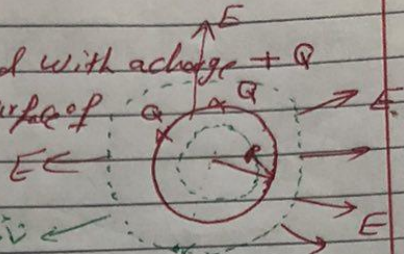 E
d with a charge + Q
Q Q
rface of
E
E
R
E